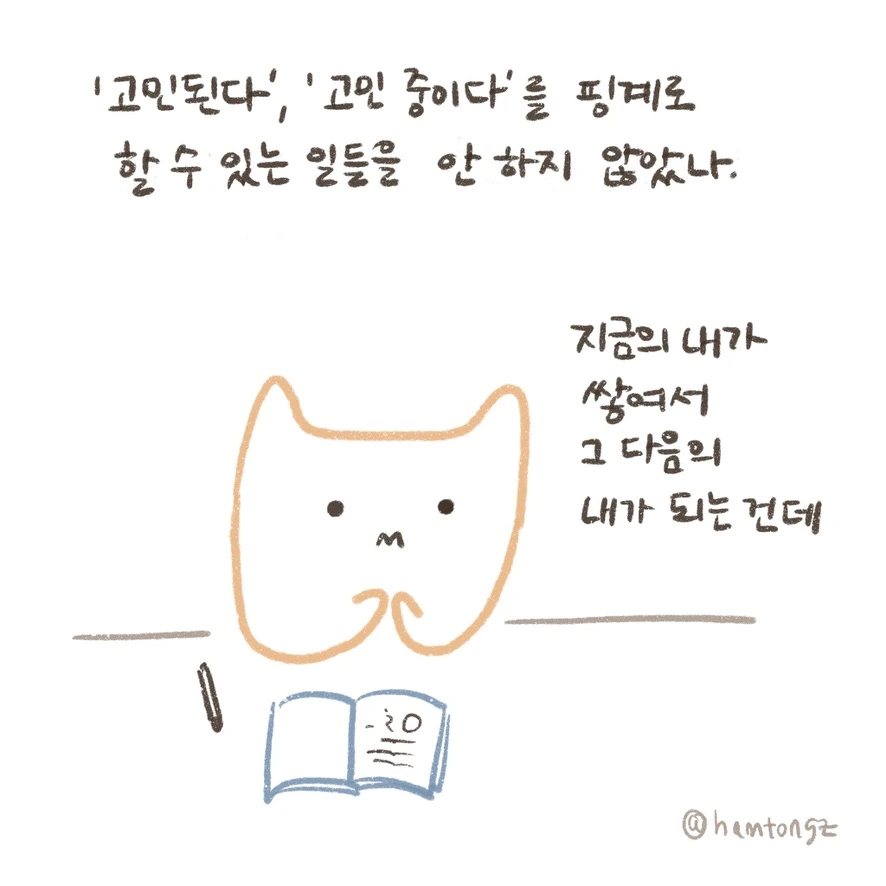 '고민된다', '고민 중이다'를 핑계로
할 수 있는 일들을 안 하지 않았나.
지금의 내가
쌓여서
그 다음의
내가 되는 건데
@hamtongz